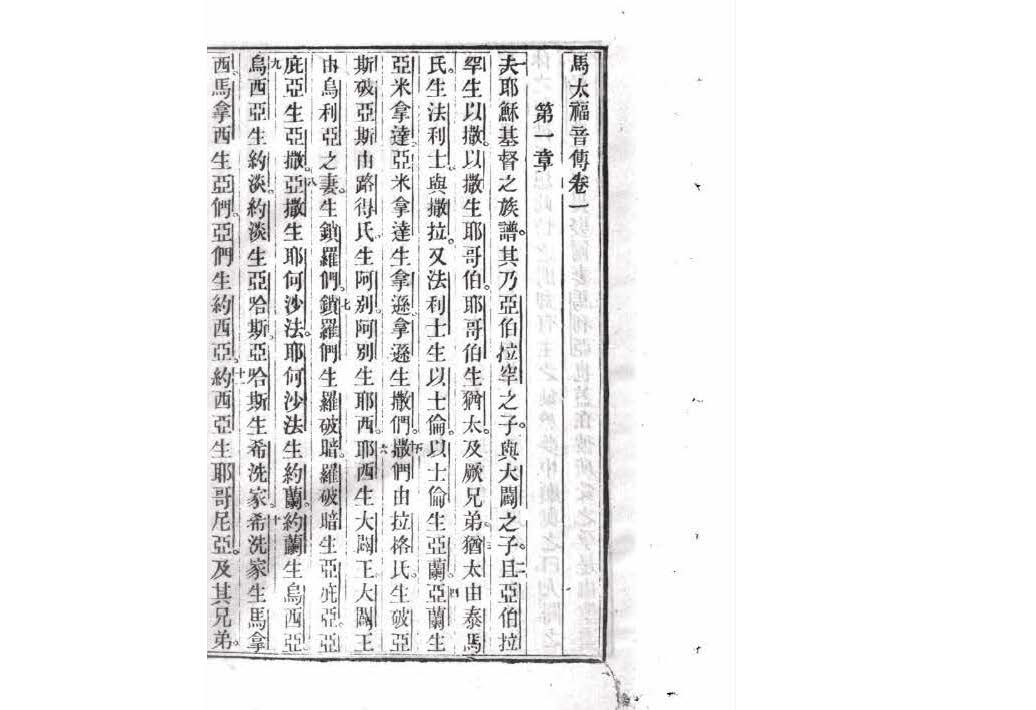 馬太福音傳卷一
第一章
一夫耶穌基督之族譜。其乃亞伯拉罕之子。與大闢之子。二且亞伯拉
罕生以撒。以撒生耶哥伯。耶哥伯生猶太。及厥兄弟。三猶太由泰馬
氏生法利士與撒拉。又法利士生以士倫。以士倫生亞蘭。四亞蘭生
亞米拿達。亞米拿達生拿遜。拿遜生撒們。五撒們由拉格氏生破亞
斯。破亞斯由路得氏生阿別。阿別生耶西。六耶西生大闢王。大闢王
由烏利亞之妻。生鎖羅們。七鎖羅們生羅破暗。羅破暗生亞庇亞。亞
庇亞生亞撒。八亞撒生耶何沙法。耶何沙法生約蘭。約蘭生烏西亞。
九烏西亞生約淡。約淡生亞哈斯。亞哈斯生希洗家。十希洗家生馬拿
西。馬拿西生亞們。亞們生約西亞。十一約西亞生耶哥尼亞。及其兄弟。